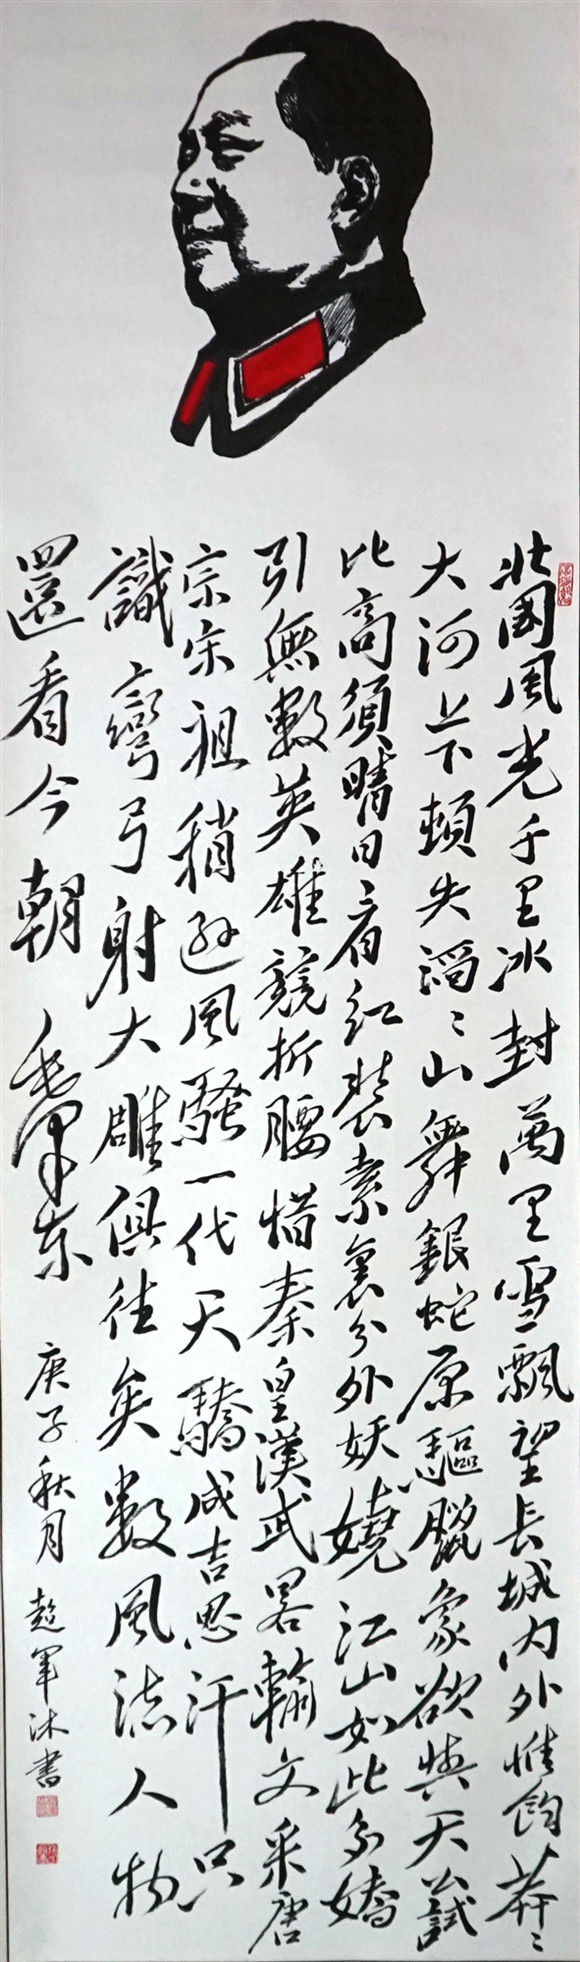 北國風光千里冰封萬里雪飄望長城内外惟餘莽〻
大河上下頓失滔〻山舞銀蛇原驅臘象欲與天公試
比高須晴日看紅裝素裹分外妖嬈江山如此多嬌
引無數英雄競折腰惜秦皇漢武畧輸文采唐
宗宋祖稍遜風騷一代天驕成吉思汗只
識彎弓射大雕俱往矣數風流人物
還看今朝 毛澤东
庚子秋月 趙軍沐書